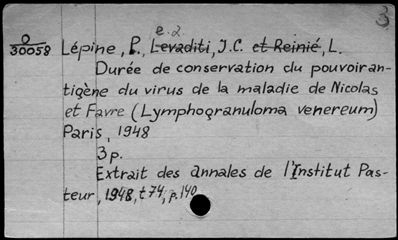 3
e.a
O/30058 Lépine, P., Levaditi, J.C. et Reinié, L.
Durée de conservation du pouvoir an-
tigène du virus de la maladie de Nicolas
et Favre (Lymphogranuloma venereum)
Paris, 1948
3 p.
Extrait des annales de l'Institut Pas-
teur, 1948, t 74, p. 140